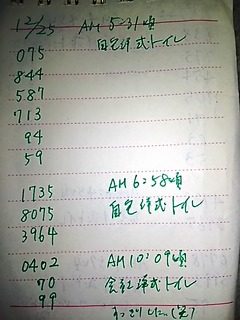 12/25 AM 5:31頃
075 自宅洋式トイレ
844
587
713
94
59
1735 AM 6:58頃
8075 自宅洋式トイレ
3964
0402 AM 10:09頃
70 会社洋式トイレ
99 すっきりした(笑)